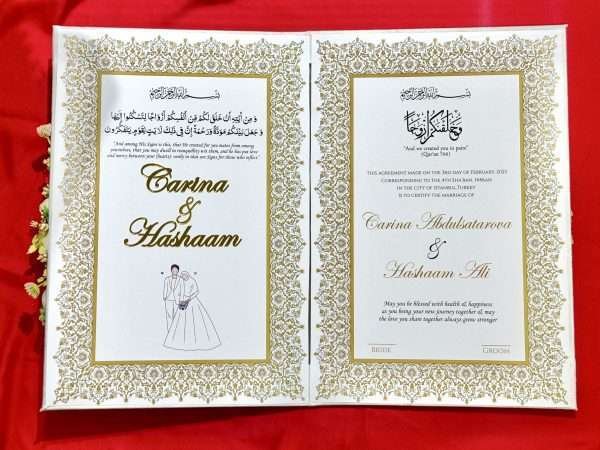 بسم الله الرحمن الرحيم
وَمِنْ آيَاتِهِ أَنْ خَلَقَ لَكُم مِّنْ أَنفُسِكُمْ أَزْوَاجًا لِّتَسْكُنُوا إِلَيْهَا
وَجَعَلَ بَيْنَكُم مَّوَدَّةً وَرَحْمَةً إِنَّ فِي ذَلِكَ لَآيَاتٍ لِّقَوْمٍ يَتَفَكَّرُونَ
"And among His Signs is this, that He created for you mates from among
yourselves, that you may dwell in tranquility with them, and he has put love
and mercy between your (hearts): verily in that are Signs for those who reflect."
Carina
&
Hashaam
بسم الله الرحمن الرحيم
وخلقنكم أزوجا
"And we created you in pairs"
(Qur'an 78:8)
THIS AGREEMENT MADE ON THE 3RD DAY OF FEBRUARY, 2025
CORRESPONDING TO THE 4TH SHA'BAN, 1446AH
IN THE CITY OF ISTANBUL, TURKEY
IS TO CERTIFY THE MARRIAGE OF
Carina Abdulsatarova
&
Hashaam Ali
May you be blessed with health & happiness
as you bring your new journey together & may
the love you share together always grow stronger
BRIDE
GROOM